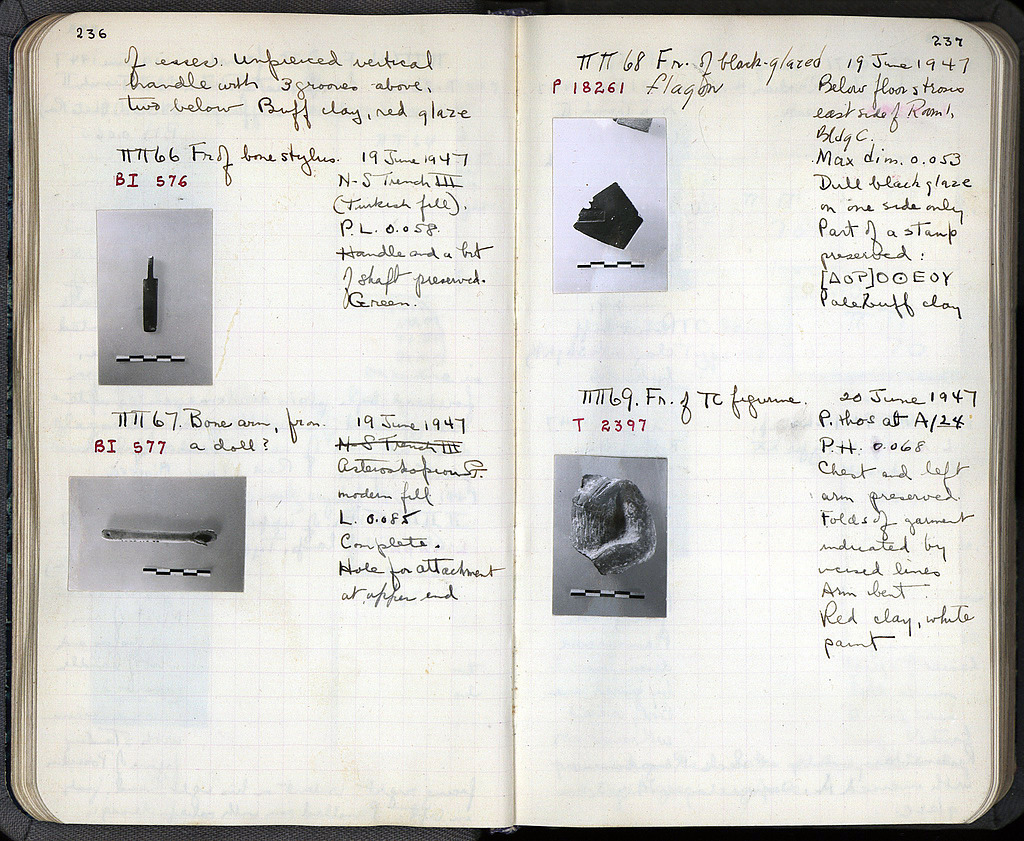 236
of esses. Unpierced vertical
handle with 3 grooves above,
two below Buff clay, red glaze
ΠΠ 66 Fr. of bone stylus. 19 June 1947
BI 576
N-S Trench III
(Turkish fill).
P.L. 0.058
Handle and a bit
of shaft preserved.
Green.
ΠΠ 67. Bone arm, from 19 June 1947
BI 577 a doll?
N-S Trench III
Asteroskopeiou St.
modern fill
L. 0.085
Complete.
Hole for attachment
at upper end
237
ΠΠ 68 Fr. of black-glazed 19 June 1947
P 18261 flagon
Below floor strosis
east side of Room 1,
Bldg C.
Max dim. 0.053
Dull black glaze
on one side only
Part of a stamp
preserved:
[ΔΟΡ]ΟΘΕΟΥ
Pale buff clay
ΠΠ 69. Fr. of TC figurine. 20 June 1947
T 2397
P. thos at A/24
P.H. 0.068
Chest and left
arm preserved.
Folds of garment
indicated by
incised lines
Arm bent.
Red clay, white
paint